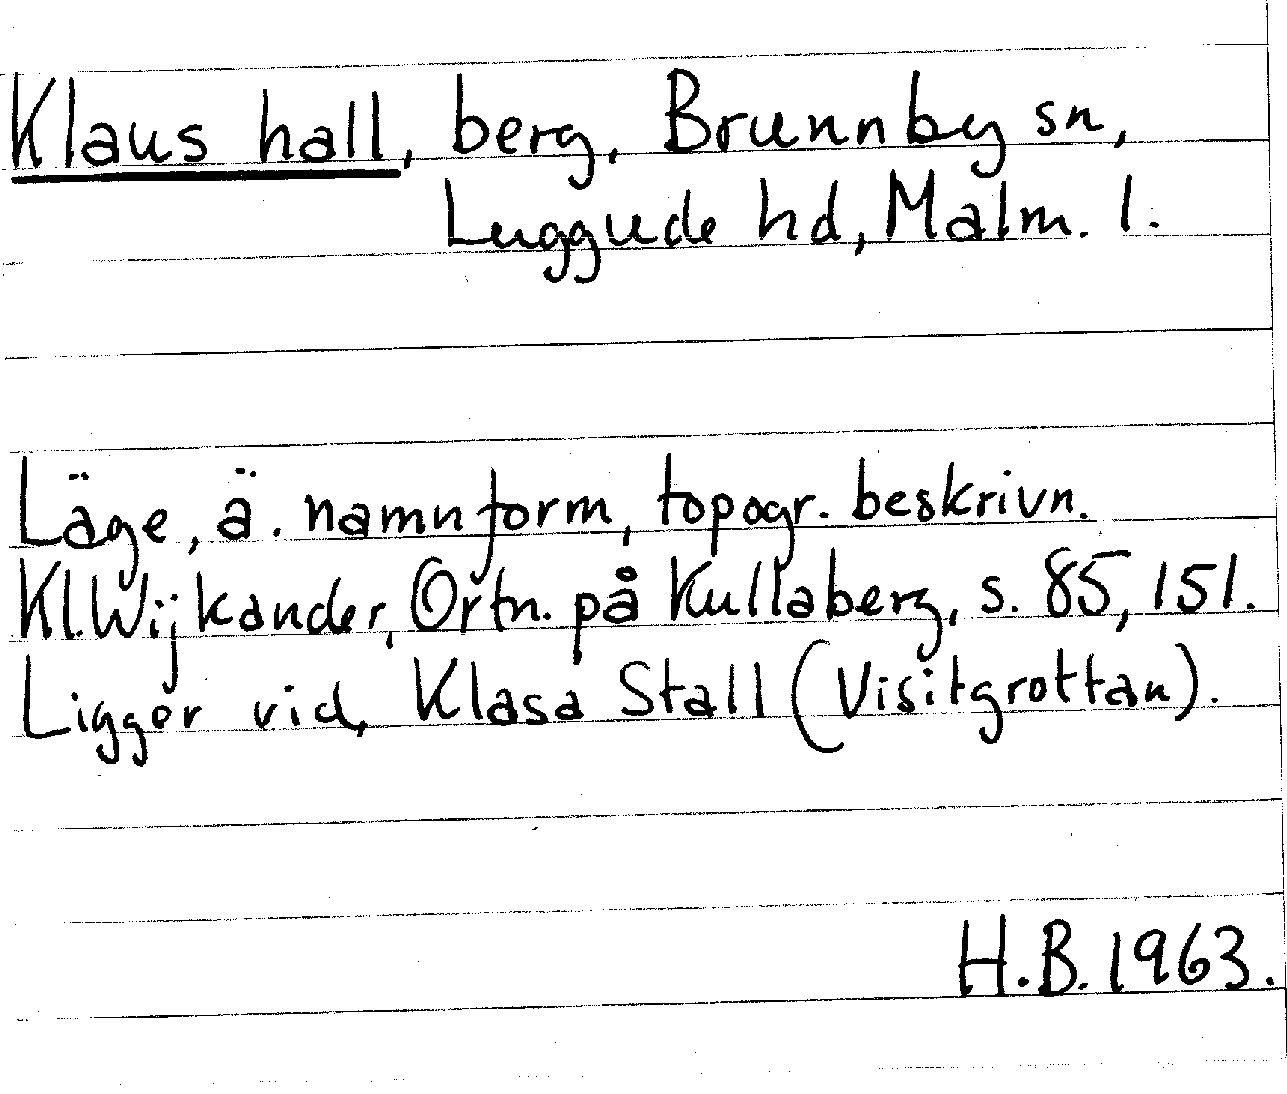 Klaus hall, berg, Brunnby sn,
Luggude hd, Malm. l.
Läge, ä. namnform, topogr. beskrivn.
Kl. Wijkander, Ortn. på Kullaberg, s. 85, 151.
Ligger vid, Klasa Stall (Visitgrottan).
H.B. 1963.